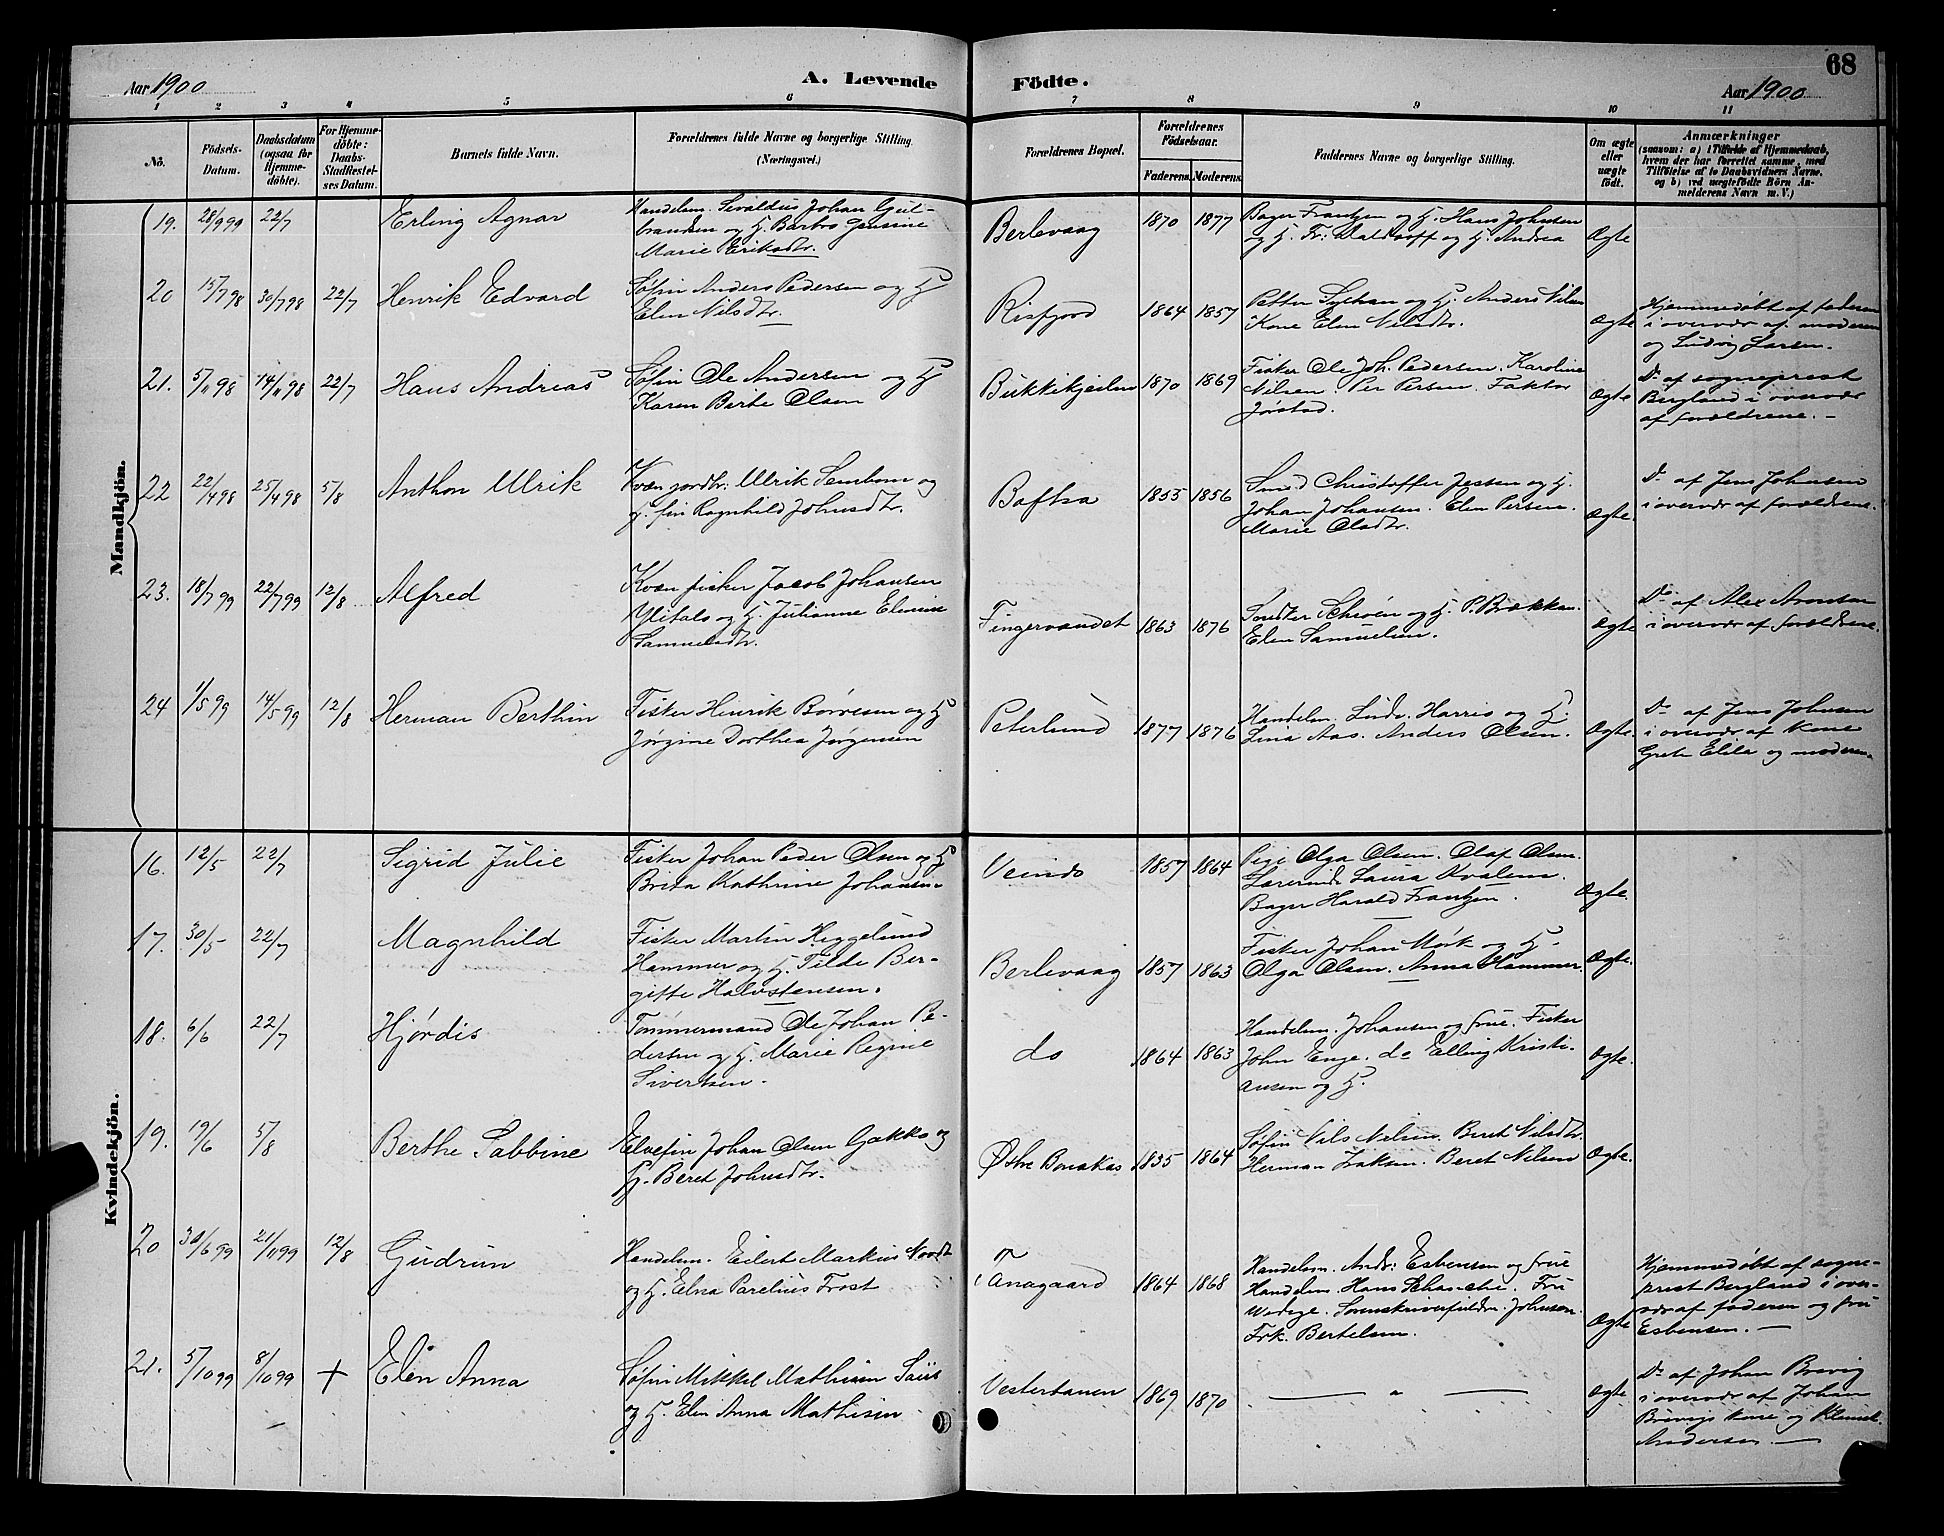 68
Aar 1900
A. Levende Födte.
Aar 1900
1 2 3 4 5 6 7 8 9 10 11
No.
Födsels-
Datum.
Daabsdatum
(ogsaa for
Hjemme-
döbte).
For Hjemme-
döbte:
Daabs-
Stadfestel-
ses Datum.
Barnets fulde Navn.
Forældrenes fulde Navne og borgerlige Stilling
(Næringsvei.)
Forældrenes Bopæl.
Forældrenes
Födselsaar.
Faderens. Moderens.
Faddernes Navne og borgerlige Stilling.
Om ægte
eller
uægte
født.
Anmærkninger
(saasom: a) i Tilfælde af Hjemmedaab,
hvem der har forrettet samme, med
Tilföielse af to Daabsvidners Navne,
og b) ved uægtefödte Börn An-
melderens Navn m. V.)
Mandkjön.
19. 28/9 99 22/7 Erling Agnar
Handelsm. Sevaldus Johan Gul-
bransen og H. Barbro Gensine
Marie Eriksdtr.
Berlevaag 1870 1877
Bager Frantzen og H. Hans Johnsen
og H. Fr: Waldorff og H. Andrea
Ægte
20 15/7 98 30/7 98 22/7 Henrik Edvard
Søfin Anders Pedersen og H
Elen Nilsdtr.
Risfjord 1864 1857
Petter og H. Anders Nilsen
Kone Elen Nilsdtr.
Ægte
Hjemmedøbt af faderen
i overvær af moderen
og Ludvig Larsen.
21. 5/11 98 14/11 98 22/7 Hans Andreas
Søfin Ole Andersen og H
Karen Berte Olsen
Bukkikjeilen 1870 1869
Fisker Ole Joh. Pedersen. Karoline
Nilsen. Per Persen. Faktor
Jørstad.
Ægte
Do af sogneprest
Bergland i overvær
af forældrene. -
22 22/4 98 25/4 98 5/8 Anthon Ulrik
Kvæn jordbr: Ulrik Sembom og
H. fin Ragnhild Johnsdtr.
Boftsa 1855 1856
Smed Christoffer Jessen og H.
Johan Johansen. Elen Persen.
Marie Oladtr.
Ægte.
Do af Jens Johnsen
i overvær af forældrene.
23. 18/7 99 22/7 99 12/8 Alfred
Kvæn fisker Jacob Johansen
Ylitalo og H. Julianne Elmine
Samuelsdtr.
Fingervandet 1863 1876
og H. P. Brækkan.
Elen Samuelsen.
Ægte
Do af Alex Aronsen
i overvær af forældrene.
24 1/5 99 14/5 99 12/8 Herman Berthin
Fisker Henrik Børresen og H
Jørgine Dorthea Jørgensen
Peterlund 1877 1876
Handelsm. Ludv. Harris og H.
Lina Aas. Anders Olsen.
Ægte.
Do af Jens Johnsen
i overvær af Kone
Grete Elile og moderen.
Kvindekjön.
16. 12/5 22/7 Sigrid Julie
Fisker Johan Peder Olsen og H
Brita Kathrine Johansen.
Veinds 1857 1864
Pige Olga Olsen. Olaf Olsen.
Lærerinde Laura Kvalem.
Bager Harald Frantzen.
Ægte.
17. 30/5 22/7 Magnhild
Fisker Martin Heggelund
Hammer og H. Tilde Ber-
gitte Halvstensen.
Berlevaag 1857 1863
Fisker Johan Mørk og H.
Olga Olsen. Anna Hammer.
Ægte.
18. 6/6 22/7 Hjørdis
Tømmermand Ole Johan Pe-
dersen og H. Marie Regine
Sivertsen.
do 1864 1863
Handelsm. Johansen og frue. Fisker
John Enge. do Elling Kristi-
ansen og H.
Ægte.
19. 19/6 5/8 Berthe Sabbine
Elvefin Johan Olsen Gakko og
H. Beret Johnsdtr.
Østre Bonakas 1835 1864
Søfin Nils Nilsen. Beret Nilsdtr.
Herman Isaksen. Beret Nilsen
Ægte.
20 30/6 99 21/11 99 12/8 Gudrun
Handelsm. Eilert Markus Nordt
og H. Elna Parelius Frost
Tanagaard 1864 1868
Handelsm. Andr: Esbensen og frue
Handelsm. Hans Schanche. Fru
Wedege. Sorenskriverfuldm. Johnsen.
Frk. Bertelsen.
Ægte
Hjemmedøbt af sogne-
prest Bergland i over-
vær af faderen og fru
Esbensen. -
21. 5/10 99 8/10 99 + Elen Anna
Søfin Mikkel Mathisen Saus
og H. Elen Anna Mathisen
Vestertanen 1869 1870
— " —
Ægte
Do af Johan Brevig
i overvær af Johan
Brevigs kone og Klemet
Andersen. -